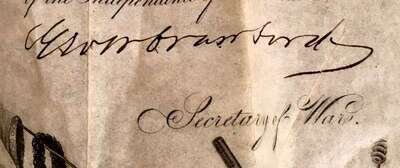 of the Independence of
Geo W Crawford
Secretary of War.